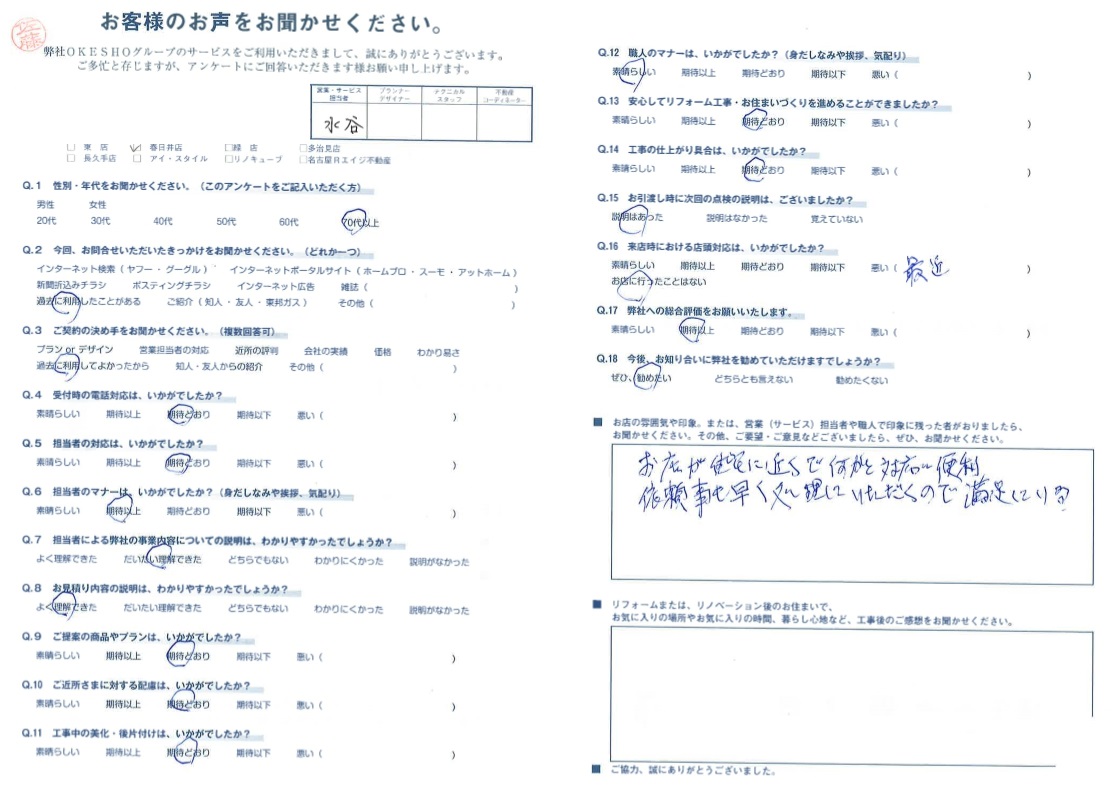 佐藤
お客様のお声をお聞かせください。
弊社OKESHOグループのサービスをご利用いただきまして、誠にありがとうございます。
ご多忙と存じますが、アンケートにご回答いただきます様お願い申し上げます。
営業・サービス担当者 プランナーデザイナー テクニカルスタッフ 不動産コーディネーター
水谷
□ 東 店 ☑ 春日井店 □緑 店 □多治見店
□ 長久手店 □ アイ・スタイル □リノキューブ □名古屋Rエイジ不動産
Q.1 性別・年代をお聞かせください。（このアンケートをご記入いただく方）
男性 女性
20代 30代 40代 50代 60代 70代以上
Q.2 今回、お問合せいただいたきっかけをお聞かせください。（どれか一つ）
インターネット検索（ ヤフー ・ グーグル ） インターネットポータルサイト（ ホームプロ ・ スーモ ・ アットホーム ）
新聞折込みチラシ ポスティングチラシ インターネット広告 雑誌（ ）
過去に利用したことがある ご紹介（ 知人 ・ 友人 ・ 東邦ガス ） その他（ ）
Q.3 ご契約の決め手をお聞かせください。（複数回答可）
プラン or デザイン 営業担当者の対応 近所の評判 会社の実績 価格 わかり易さ
過去に利用してよかったから 知人・友人からの紹介 その他（ ）
Q.4 受付時の電話対応は、いかがでしたか？
素晴らしい 期待以上 期待どおり 期待以下 悪い（ ）
Q.5 担当者の対応は、いかがでしたか？
素晴らしい 期待以上 期待どおり 期待以下 悪い（ ）
Q.6 担当者のマナーは、いかがでしたか？（身だしなみや挨拶、気配り）
素晴らしい 期待以上 期待どおり 期待以下 悪い（ ）
Q.7 担当者による弊社の事業内容についての説明は、わかりやすかったでしょうか？
よく理解できた だいたい理解できた どちらでもない わかりにくかった 説明がなかった
Q.8 お見積り内容の説明は、わかりやすかったでしょうか？
よく理解できた だいたい理解できた どちらでもない わかりにくかった 説明がなかった
Q.9 ご提案の商品やプランは、いかがでしたか？
素晴らしい 期待以上 期待どおり 期待以下 悪い（ ）
Q.10 ご近所さまに対する配慮は、いかがでしたか？
素晴らしい 期待以上 期待どおり 期待以下 悪い（ ）
Q.11 工事中の美化・後片付けは、いかがでしたか？
素晴らしい 期待以上 期待どおり 期待以下 悪い（ ）
Q.12 職人のマナーは、いかがでしたか？（身だしなみや挨拶、気配り）
素晴らしい 期待以上 期待どおり 期待以下 悪い（ ）
Q.13 安心してリフォーム工事・お住まいづくりを進めることができましたか？
素晴らしい 期待以上 期待どおり 期待以下 悪い（ ）
Q.14 工事の仕上がり具合は、いかがでしたか？
素晴らしい 期待以上 期待どおり 期待以下 悪い（ ）
Q.15 お引渡し時に次回の点検の説明は、ございましたか？
説明はあった 説明はなかった 覚えていない
Q.16 来店時における店頭対応は、いかがでしたか？
素晴らしい 期待以上 期待どおり 期待以下 悪い（ 最近 ）
お店に行ったことはない
Q.17 弊社への総合評価をお願いいたします。
素晴らしい 期待以上 期待どおり 期待以下 悪い（ ）
Q.18 今後、お知り合いに弊社を勧めていただけますでしょうか？
ぜひ、勧めたい どちらとも言えない 勧めたくない
■ お店の雰囲気や印象。または、営業（サービス）担当者や職人で印象に残った者がおりましたら、
お聞かせください。その他、ご要望・ご意見などございましたら、ぜひ、お聞かせください。
お店が住宅に近くで何かと対応に便利
依頼事も早く処理していただくので満足している
■ リフォームまたは、リノベーション後のお住まいで、
お気に入りの場所やお気に入りの時間、暮らし心地など、工事後のご感想をお聞かせください。
■ ご協力、誠にありがとうございました。